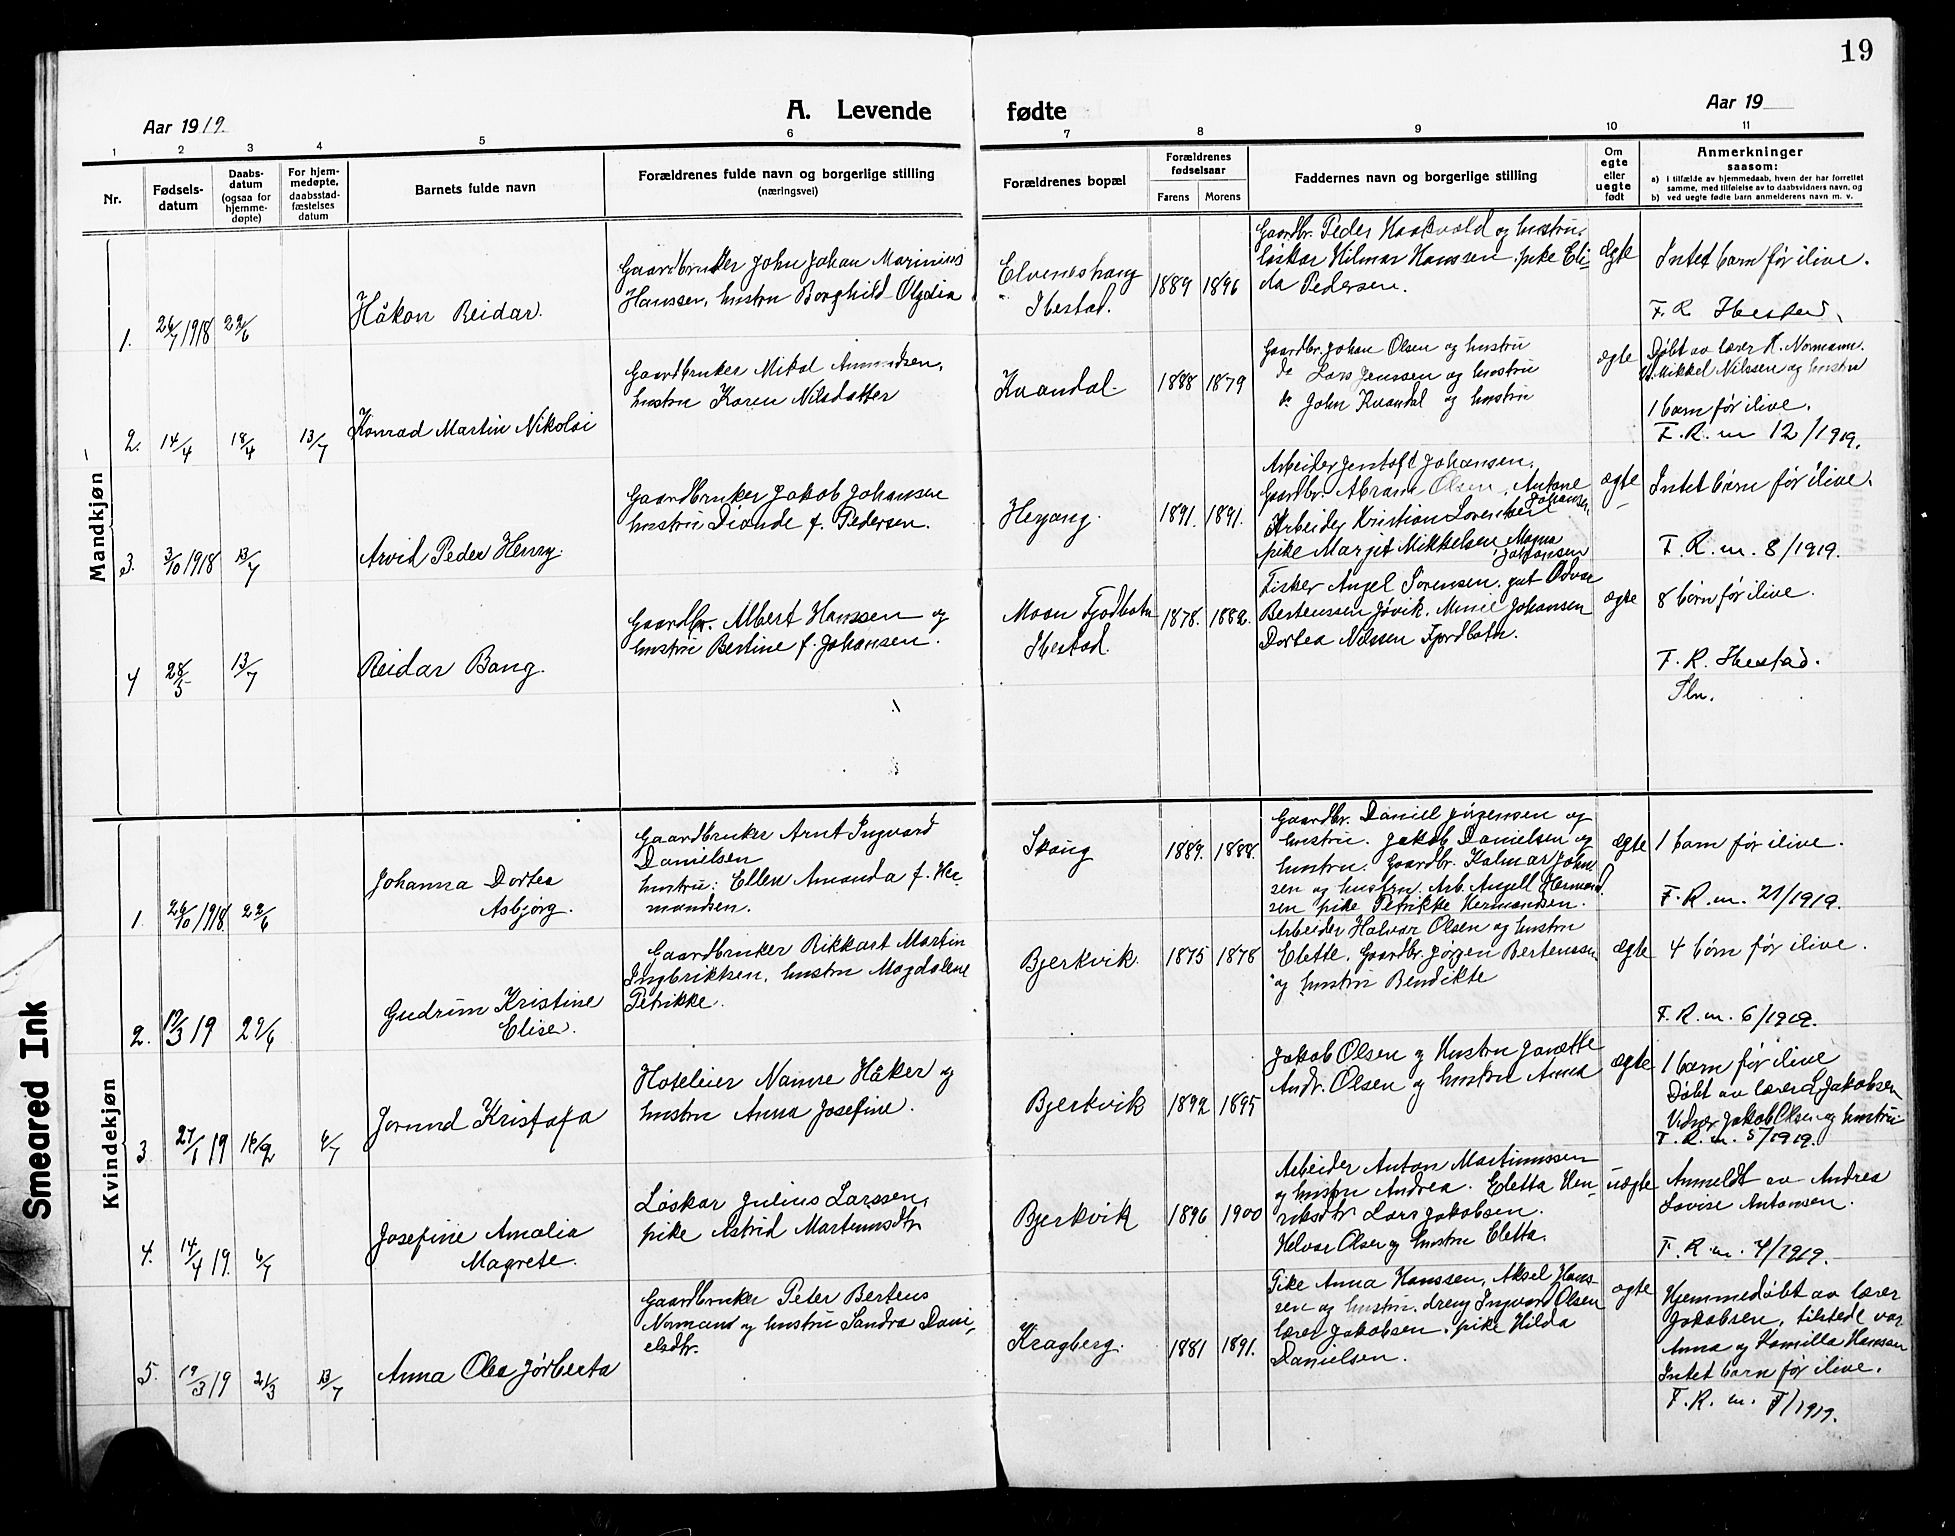 19
Aar 1919.
A. Levende fødte
Aar 19
1 2 3 4 5 6 7 8 9 10 11
Nr.
Fødsels-
datum
Daabs-
datum
(ogsaa for
hjemme-
døpte)
For hjem-
medøpte,
daabsstad-
fæstelses
datum
Barnets fulde navn
Forældrenes fulde navn og borgerlige stilling
(næringsvei)
Forældrenes bopæl
Forældrenes
fødselsaar
Farens Morens
Faddernes navn og borgerlige stilling
Om
egte
eller
uegte
født
Anmerkninger
saasom:
a) i tilfælde av hjemmedaab, hvem der har forrettet
samme, med tilføielse av to daabsvidners navn, og
b) ved uegte fødte barn anmelderens navn m. v.
Mandkjøn
1. 26/7 1918 22/6
Håkon Reidar.
Gaardbruker John Johan Marinius
Hanssen, hustru Borghild Olgdia
Elveneshaug
Ibestad.
1889 1896
Gaardbr. Peder Haakvold og hustru,
løskar Hilmar Hanssen, pike Eli-
da Pedersen.
Ægte
Intet barn før ilive.
F. R. Ibestad.
2. 14/4 18/4 13/7
Konrad Martin Nikolai
Gaardbruker Mikal Amundsen,
hustru Karen Nilsdatter
Kvandal
1888 1879
Gaardbr. Johan Olsen og hustru
do Lars Jenssen og hustru
do John Kvandal og hustru
ægte
Døbt av lærer K. Normann.
V. Mikkel Nilssen og hustru
1 barn før ilive.
F. R. m 12/1919.
3. 3/10 1918 13/7
Arvid Peder Henry.
Gaardbruker Jakob Johansen
hustru Diande f. Pedersen.
Hergang.
1891. 1891.
Arbeider Jentoft Johansen.
Gaardbr. Abram Olsen, Antone
Johansen,
Arbeider Kristian Lorentsen
pike Margit Mikkelsen, Magna
Johansen
ægte
Intet børn før ilive.
F. R. m. 8/1919.
4 28/5 13/7
Reidar Bang.
Gaardbr. Albert Hanssen og
hustru Bertine f. Johansen.
Moan Fjordbotn
Ibestad.
1878. 1882.
Fisker Angel Sørensen, gut Odvar
Bertenssen Jøvik, Minie Johansen
Dortea Nilssen Fjordbotn.
ægte
8 børn før ilive.
F. R. Ibestad.
Kvindekjøn
1. 26/10 1918 22/6
Johanna Dortea
Asbjørg.
Gaardbruker Arnt Ingvard
Danielsen
hustru: Ellen Amanda f. Her-
mandsen.
Skoug
1889. 1888.
Gaardbr. Daniel Jørgensen og
hustru. Jakob Danielsen og
hustru. Gaardbr. Kalmar John-
sen og hustru. Arb. Angell Hermand-
sen pike Petrikke Hermandsen.
ægte
1 barn før ilive.
F. R. m. 21/1919.
2. 19/3 19 22/6
Gudrun Kristine
Elise.
Gaardbruker Rikkart Martin
Ingbriktsen, hustru Magdalene
Petrikke.
Bjerkvik
1875 1878
Arbeider Halvar Olsen og hustru
Elette. Gaardbr. Jørgen Bertenssen
og hustru Bendikte
ægte
4 børn før ilive.
F. R. m. 6/1919.
3. 27/1 19 16/2 6/7
Jorund Kristofa
Hoteleier Namre Håker og
hustru Anna Josefine.
Bjerkvik
1892 1895
Jakob Olsen og Hustru Janette
Andr. Olsen og hustru Anna
ægte
1 barn før ilive
Døbt av lærer L. Jakobsen
Vidner Jakob Olsen og hustru
F. R. m. 5/1919.
4. 14/4 19. 6/7
Josefine Amalia
Magrete.
Løskar Julius Larssen,
pike Astrid Martinusdtr
Bjerkvik
1896 1900
Arbeider Anton Martinussen
og hustru Andrea. Eletta Hen-
riksdtr Lars Jakobsen.
Helvor Olsen og hustru Eletta.
uægte
Anmeldt av Andrea
Lovise Antonsen.
F. R. m. 4/1919.
5. 19/3 19 21/3 13/7
Anna Olea Jørberta
Gaardbruker Peter Bertens
Normand og hustru Sandra Dani-
elsdtr.
Kragberg.
1881 1891.
Pike Anna Hanssen, Aksel Hans-
sen og hustru, dreng Ingvard Olsen
lærer Jakobsen, pike Hilda
Danielsen.
ægte
Hjemmedøbt av lærer
Jakobsen, tilstede var
Anna og Kamilla Hanssen
Intet barn før ilive.
F. R. m. 7/1919.
Smeared Ink